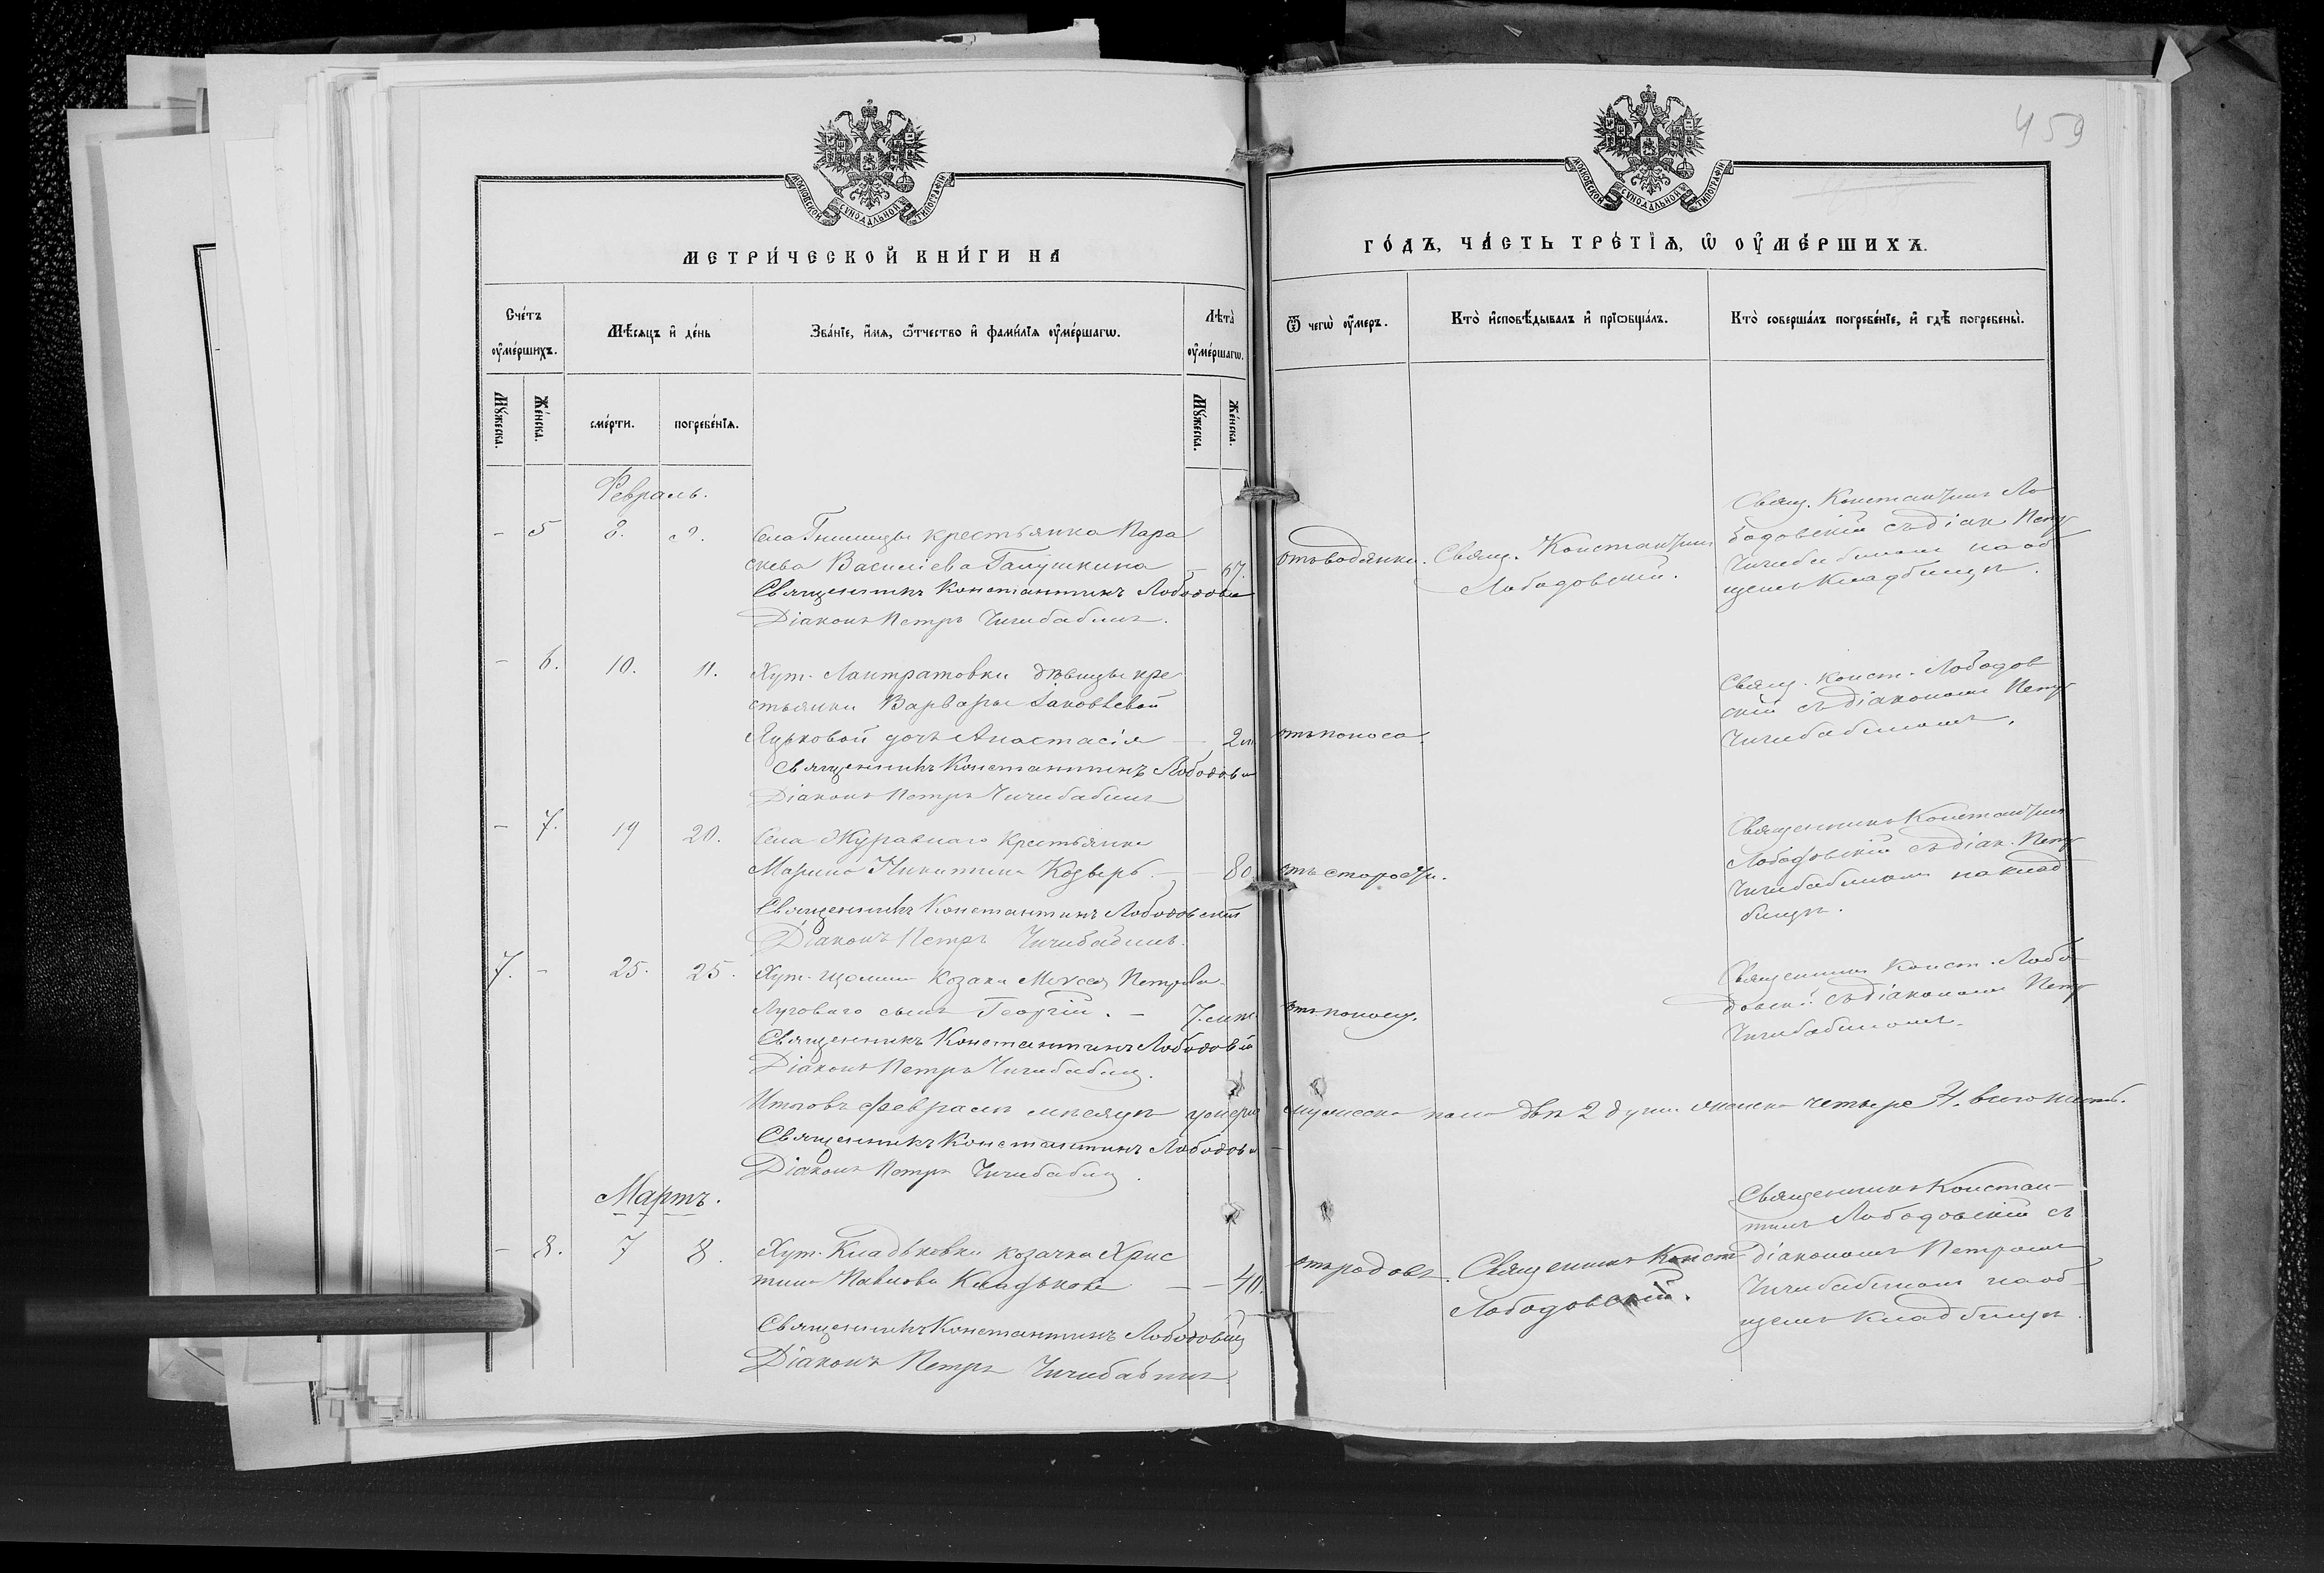 459
МОСКОВСКОЙ СѴНОДАЛЬНОЙ ТИПОГРАФІИ
МОСКОВСКОЙ СѴНОДАЛЬНОЙ ТИПОГРАФІИ
МЕТРИ́ЧЕСКОЙ КНИ́ГИ НА
ГО́ДЪ, ЧА́СТЬ ТРЕ́ТЇѦ, Ѡ ОУ҆МЕ́РШИХЪ.
Сче́тъ
оу҆ме́ршихъ.
Мѣ́сѧцъ и҆ де́нь
Зва́нїе, и҆́мѧ, ѻ҆́тчество и҆ фами́лїѧ оу҆ме́ршагѡ.
Лѣта̀
оу҆ме́ршагѡ.
Ѿ чегѡ̀ оу҆́меръ.
Кто̀ и҆сповѣ́дывалъ и҆ прїѡбща́лъ.
Кто̀ соверша́лъ погребе́нїе, и҆ гдѣ̀ погребены̀.
Мꙋ́жеска.
Же́нска.
сме́рти.
погребе́нїѧ.
Мꙋ́жеска.
Же́нска.
Февраль.
- 5 8. 9. Села Гнилицы крестьянка Пара
скева Василіева Галушкина - 67.
Священникъ Константинъ Лободовс
Діаконъ Петръ Чичибабинъ.
отъ водянки.
Свящ. Константинъ
Лободовскій.
Свящ. Константинъ Ло
бодовскій съ діак. Петр
Чичибабиномъ на об
щемъ кладбищѣ.
- 6. 10. 11. Хут. Лантратовки дѣвицы кре
стьянки Варвары Іаковлевой
Яцьковой дочь Анастасія - 2 м
Священникъ Константинъ Лободов
Діаконъ Петръ Чичибабинъ
отъ поноса.
Свящ. Конст. Лободов
скій съ діакономъ Петр
Чичибабиномъ.
- 7. 19 20. Села Журавнаго крестьянка
Марина Никитина Козырь. - 80
Священникъ Константинъ Лободовскій
Діаконъ Петръ Чичибабинъ.
отъ старости.
Священникъ Константинъ
Лободовскій съ діак. Петр
Чичибабиномъ на клад
бищѣ.
7. - 25. 25. Хут. козака Петрова
Луговаго сынъ Георгій. - 7. мѣс
Священникъ Константинъ Лободовскій
Діаконъ Петръ Чичибабин.
отъ поноса.
Священникъ Конст. Лобо
довскі съ діакономъ Петр
Чичибабиномъ.
Итого въ февралѣ мѣсяцѣ умерш мужеска пола двѣ 2 души женска четыре 4. всего шесть.
Священникъ Константинъ Лободов
Діаконъ Петръ Чичибабин.
Мартъ.
- 8. 7 8. Хут. Гладьковки козачка Хрис
тина Павлова Гладькова - - 40.
Священникъ Константинъ Лободовскій
Діаконъ Петръ Чичибабинъ
отъ родовъ.
Священникъ Конст
Лободовскій.
Священникъ Констан-
тинъ Лободовскій съ
діакономъ Петромъ
Чичибабиномъ на об-
щемъ кладбищѣ.